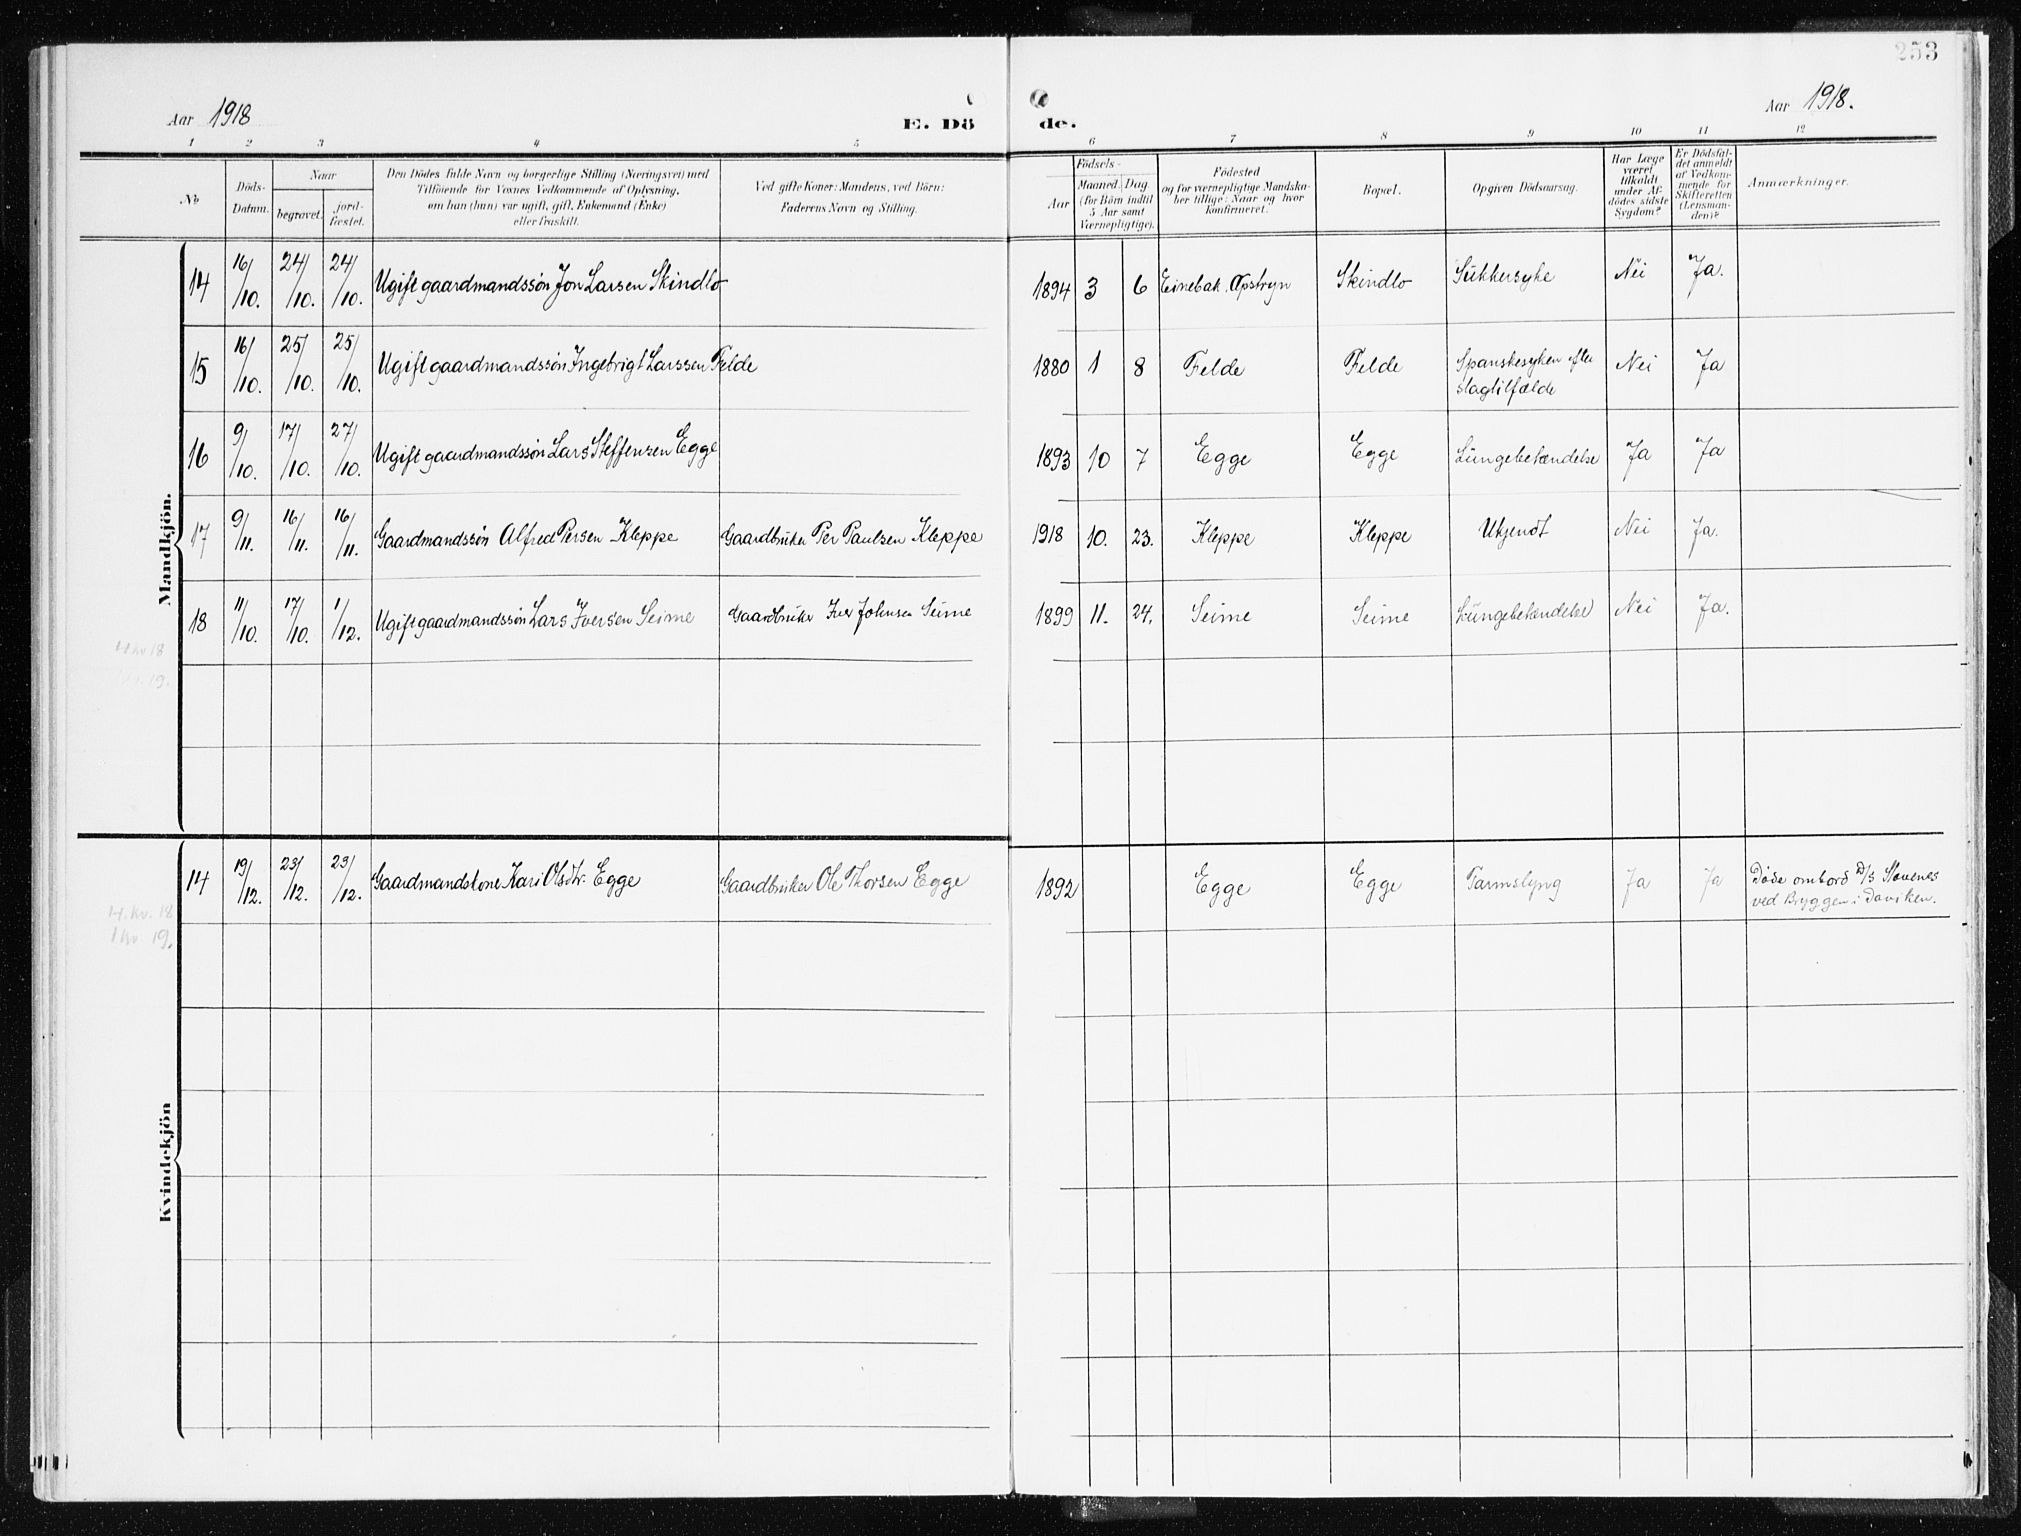 253
Aar 1918
E. Dö
de.
Aar 1918.
1 2 3 4 5 6 7 8 9 10 11 12
No
Döds-
Datum.
Naar
begravet.
jord-
fæstet.
Den Dödes fulde Navn og borgerlige Stilling (Næringsvei) med
Tilföiende for Voxnes Vedkommende af Oplysning,
om han (hun) var ugift, gift, Enkemand (Enke)
eller fraskilt.
Ved gifte Koner: Mandens, ved Börn:
Faderens Navn og Stilling.
Födsels-
Aar
Maaned. Dag
(for Börn indtil
5 Aar samt
Værnepligtige).
Födested
og for værnepligtige Mandska-
ber tillige: Naar og hvor
konfirmeret.
Bopæl.
Opgiven Dödsaarsag.
Har Læge
været
tilkaldt
under Af-
dödes sidste
Sygdom?
Er Dödsfal-
det anmeldt
af Vedkom-
mende for
Skifteretten
(Lensman-
den)?
Anmærkninger.
Mandkjön.
14 16/10. 24/10. 24/10. Ugift gaardmandssøn Jon Larsen Skindlo 1894 3 6 Einebak. Opstryn Skindlo Sukkersyke Nei Ja.
15 16/10. 25/10. 25/10. Ugift gaardmandssøn Ingebrigt Larssen Felde 1880 1 8 Felde Felde Spanskesyken efter Nei Ja
slagtilfælde
16 9/10. 17/10. 27/10. Ugift gaardmandssøn Lars Steffensen Egge 1893 10 7 Egge Egge Lungebetændelse Ja Ja
17 9/11. 16/11. 16/11. Gaardmandssøn Alfred Persen Kleppe Gaardbruker Per Paulsen Kleppe 1918 10. 23. Kleppe Kleppe Ukjendt Nei Ja.
18 11/10. 17/10. 1/12. Ugift gaardmandssøn Lars Iversen Seime Gaardbruker Iver Johnsen Seime 1899 11. 24. Seime Seime Lungebetændelse Nei Ja.
4 kv 18
1 kv. 19.
Kvindekjön
14 19/12. 23/12. 23/12. Gaardmandskone Kari Olsdtr. Egge Gaardbruker Ole Thorsen Egge 1892 Egge Egge Tarmslyng Ja Ja Døde ombord D/S Stavenes
ved Bryggen i Daviken.
4. kv. 18
1 kv 19.